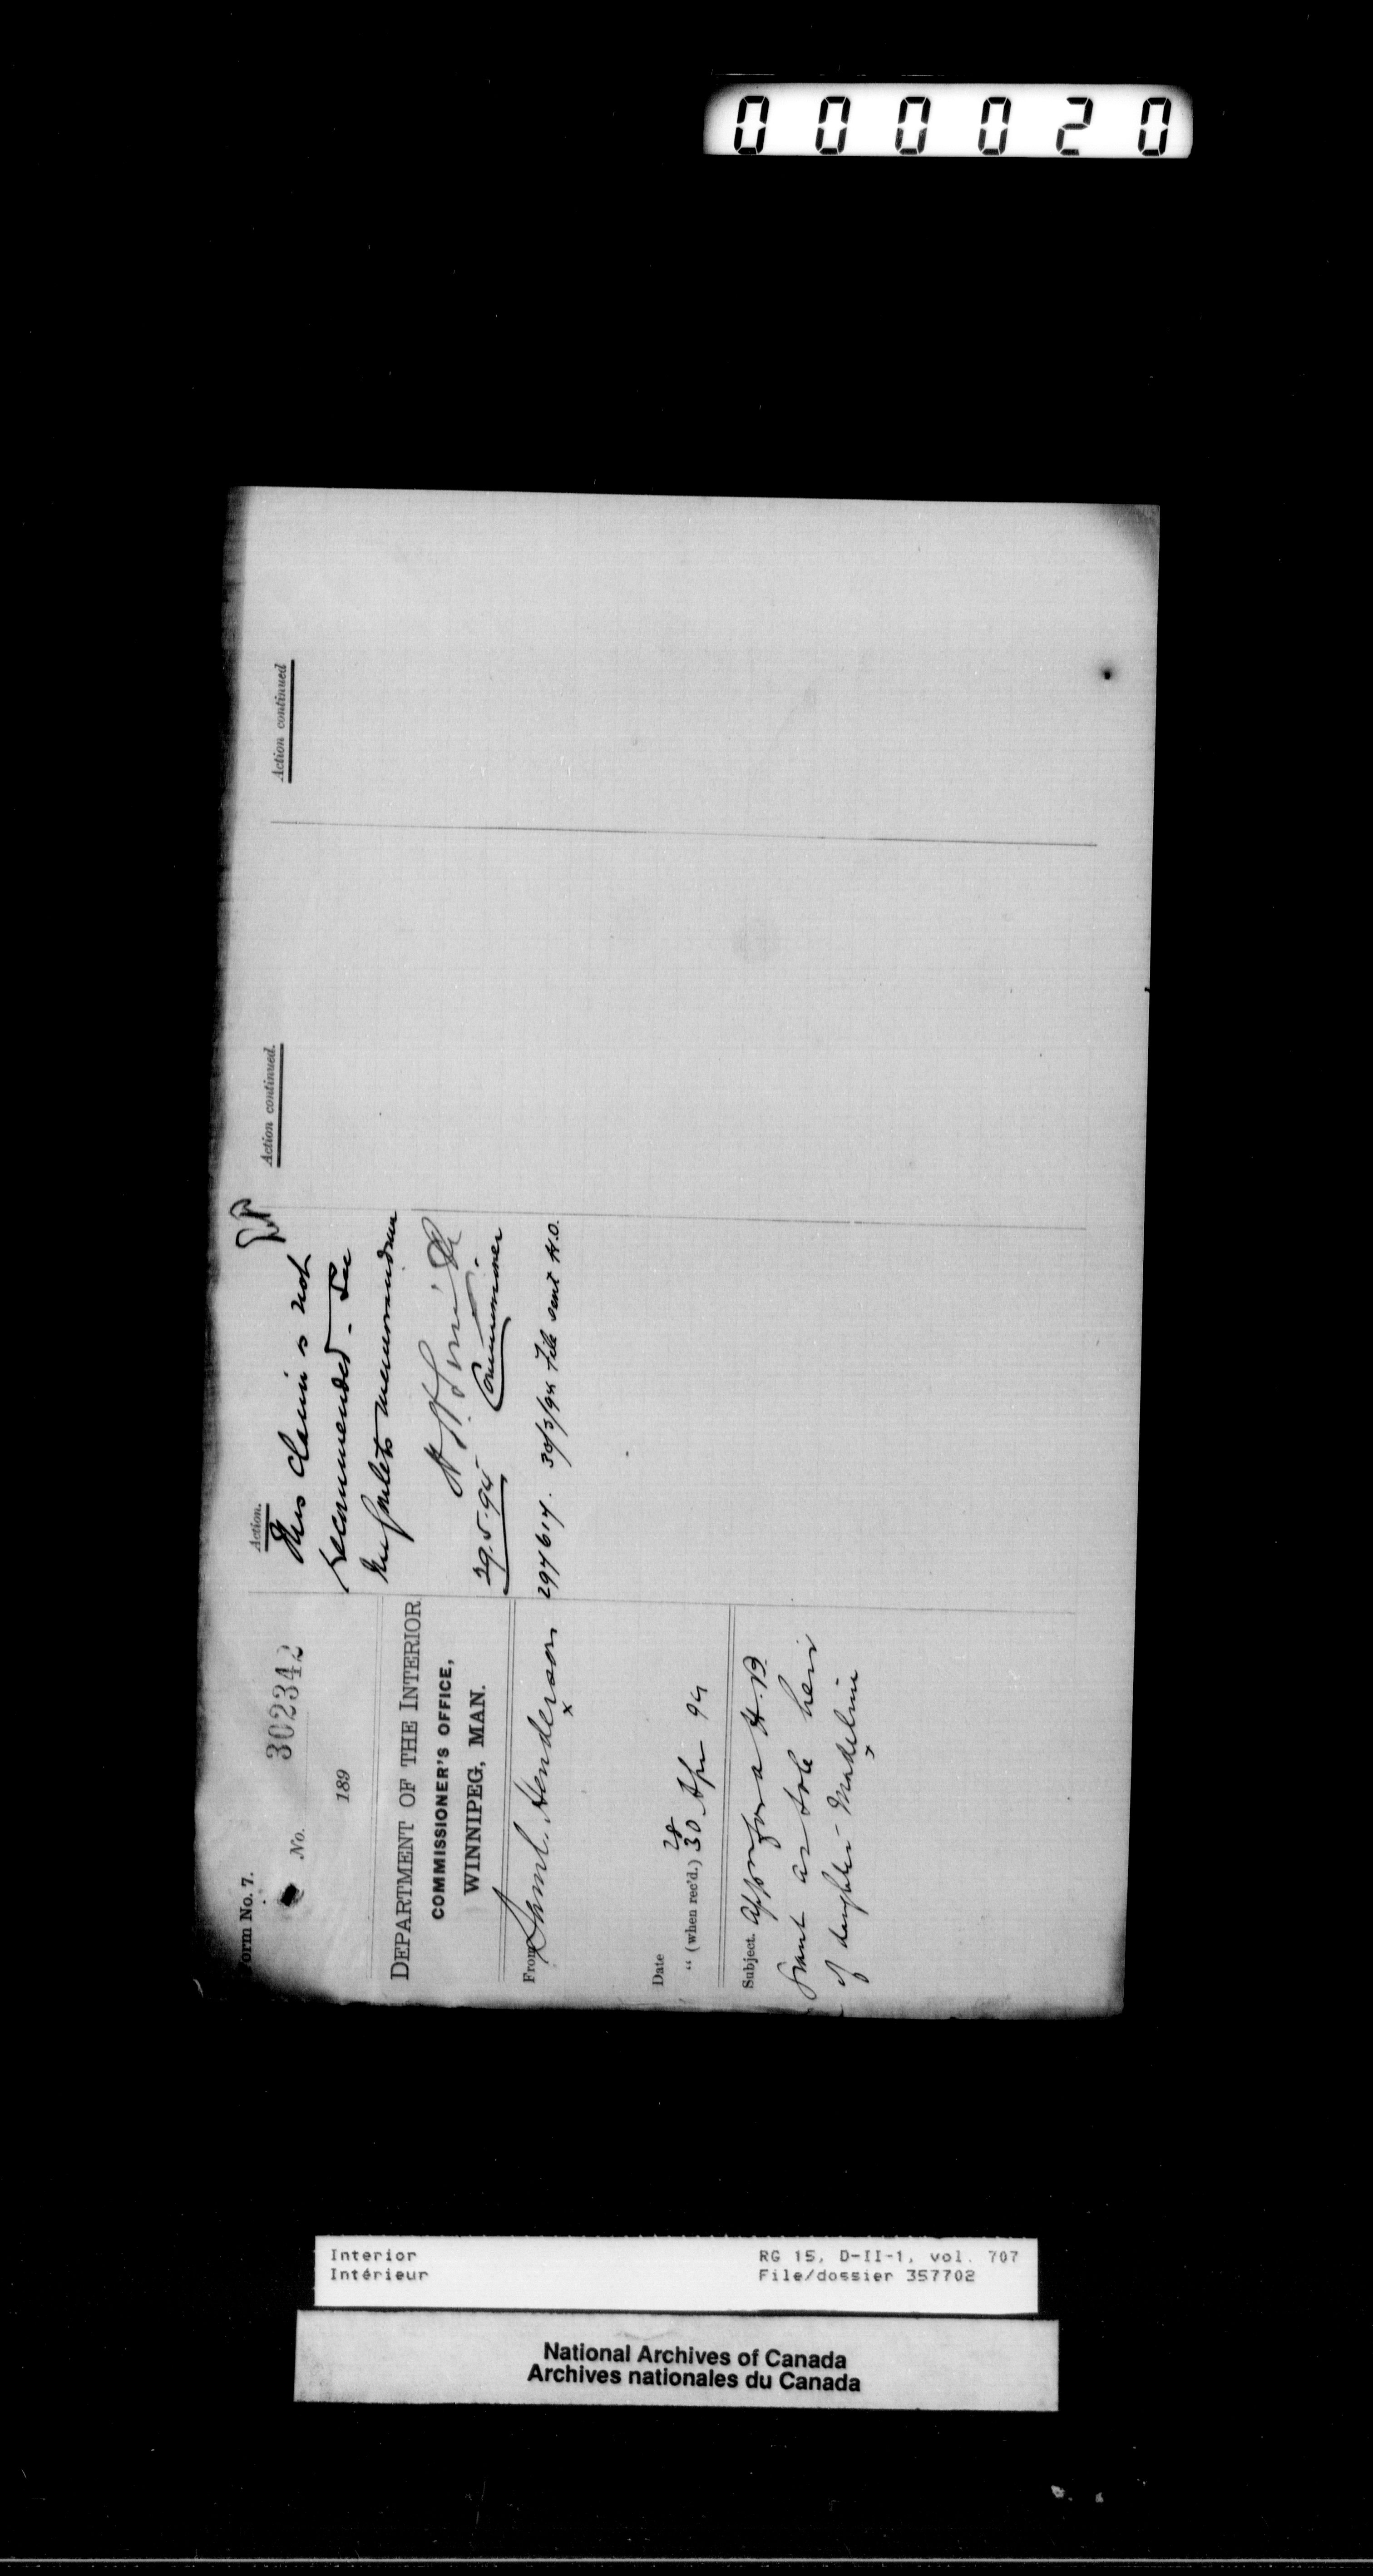 000020
Form No. 7.
No. 302342
189
DEPARTMENT OF THE INTERIOR
COMMISSIONER'S OFFICE,
WINNIPEG, MAN.
From Saml. Henderson
x
Date 28
" (when rec'd.) 30 Apr 94
Subject. appn for a H.B.
Grant as sole heir
of daughter Madeline
x
Action.
This claim is not
recommended - See
memorandum
Commissioner
29.5.94
297617. 30/5/94 File sent H.O.
Action continued.
Action continued
Interior
Intérieur
RG 15, D-II-1, vol. 707
File/dossier 357702
National Archives of Canada
Archives nationales du Canada